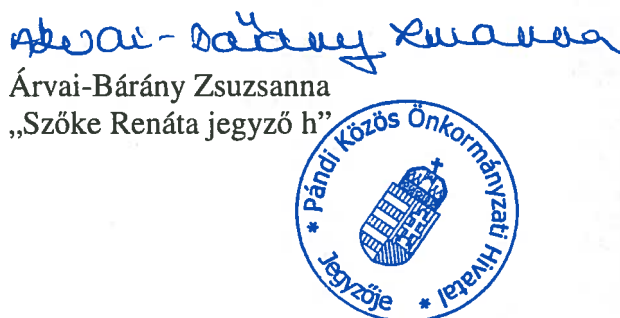 Árvai-Bárány Zsuzsanna
Árvai-Bárány Zsuzsanna
„Szőke Renáta jegyző h”
* Pándi Közös Önkormányzati Hivatal *
Jegyzője